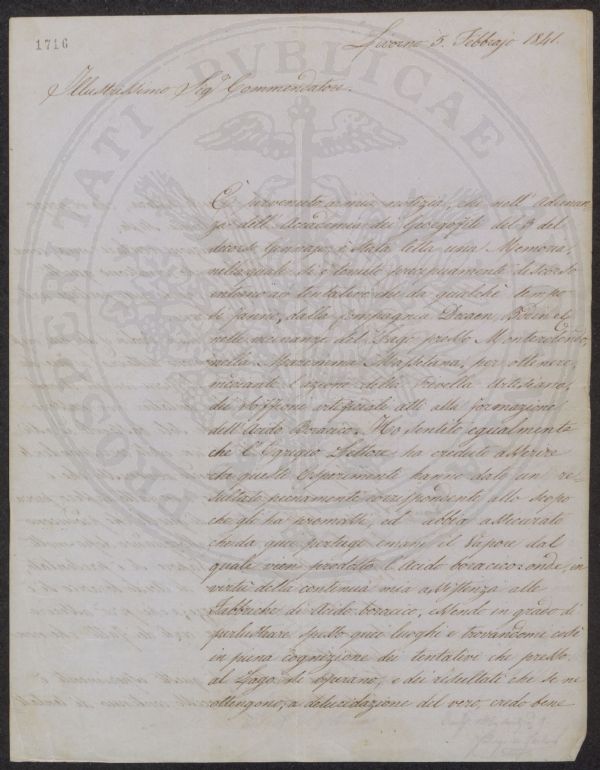 1716
Livorno 5. Febbrajo 1841.
Illustrissimo Sigr. Commendatore.
È pervenuto a mia notizia, che nell' Adunan-
za dell' Accademia dei Georgofili del 3 del
decorso Gennajo è stata letta una Memoria,
nella quale si è tenuto precipuamente discorso
intorno ai tentativi che da qualche tempo
si fanno, dalla Compagnia
nelle vicinanze del Lago presso Monterotondo,
nella Maremma Massetana, per ottenere
mediante l'azione della Trivella Artesiana,
dei soffioni artificiali atti alla formazione
dell' Acido Boracico. Ho sentito egualmente
che l' Egregio Lettore ha creduto asserire
che questi esperimenti hanno dato un re-
sultato pienamente corrispondente allo scopo
che gli ha promossi, ed abbia assicurato
che da quei pertugi emani il vapore dal
quale vien prodotto l'acido boracico: onde, in
virtù della continua mia assistenza alle
Fabbriche di Acido boracico, essendo in grado di
perlustrare spesso quei luoghi e trovandomi così
in piena cognizione dei tentativi che presso
al Lago si operano, e dei resultati che se ne
ottengono, a delucidazione del vero, credo bene
PROSPERITATI PVBLICAE